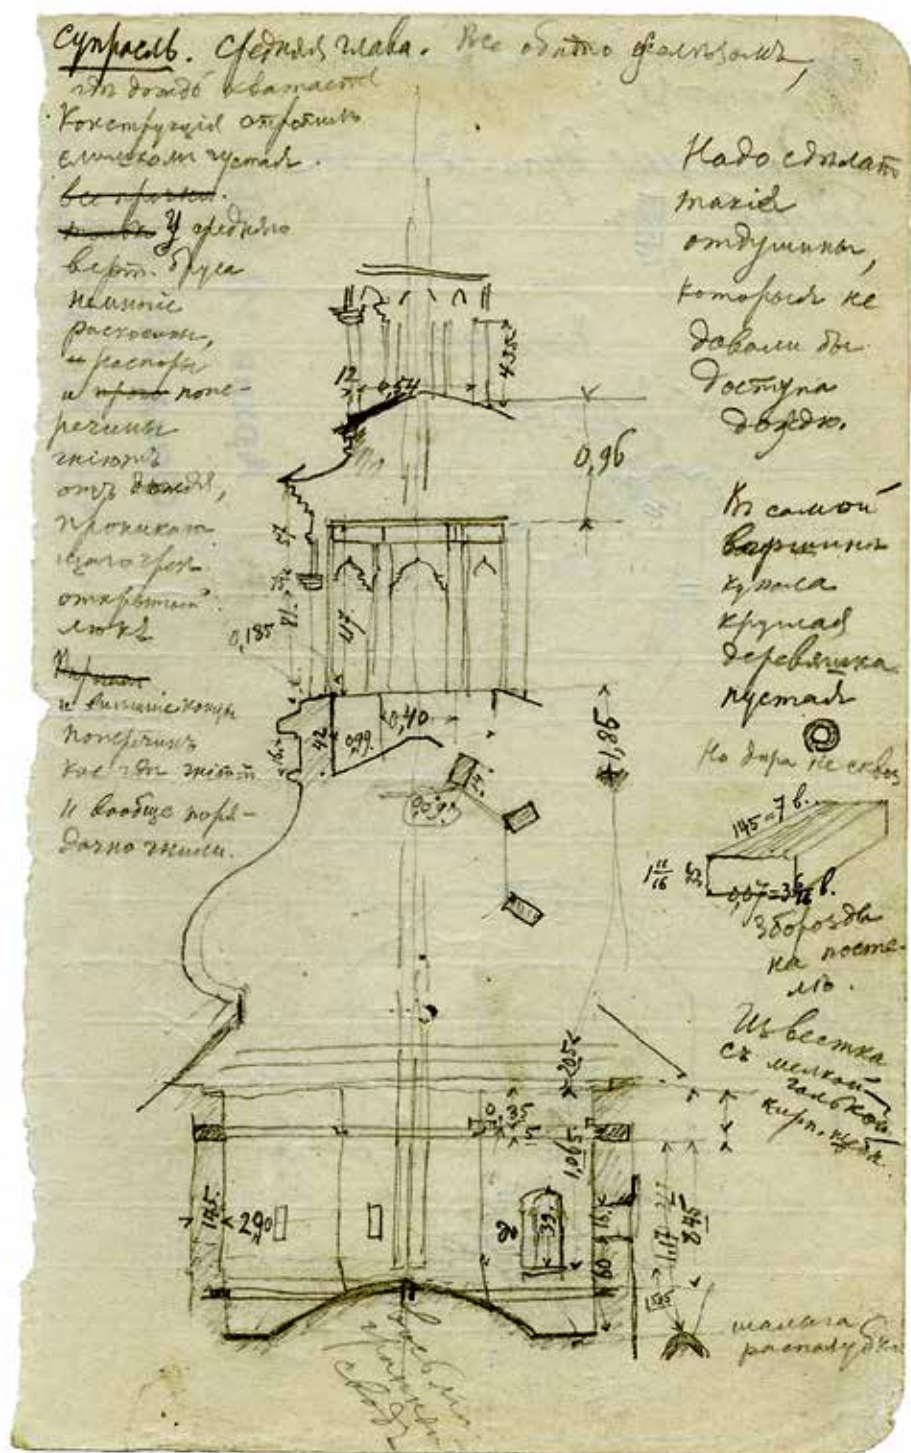 Супрасль. Средняя глава. Все обито железомъ,
гдѣ дождь хватаетъ
Конструкція стропилъ
слишкомъ густая.
все прочки.
У средняго
верт. бруса
нижніе
раскосины,
и распоры
и попе-
речины
гніютъ
отъ дождя,
проникаю
щаго чрез
открытый
люкъ
и внѣшніе концы
поперечинъ
кое гдѣ гніютъ
и вообще поря-
дочно гнили.
Надо сдѣлать
такія
отдушины,
которыя не
давали бы
доступа
дождю.
Въ самой
вершинѣ
купола
круглая
деревяшка
пустая
Но дыра не сквоз
145=7 в.
1 11/16
0,07=3 в.
3 борозды
на посте-
лѣ.
Известка
съ мелкой
галькой
кирп.
шалыга
распалубки
12
0,54
0,96
0,185
0,40
42
0,99
1,85
205
0,35
15
1,065
145
290
39
60
16
1,17
845
сводъ